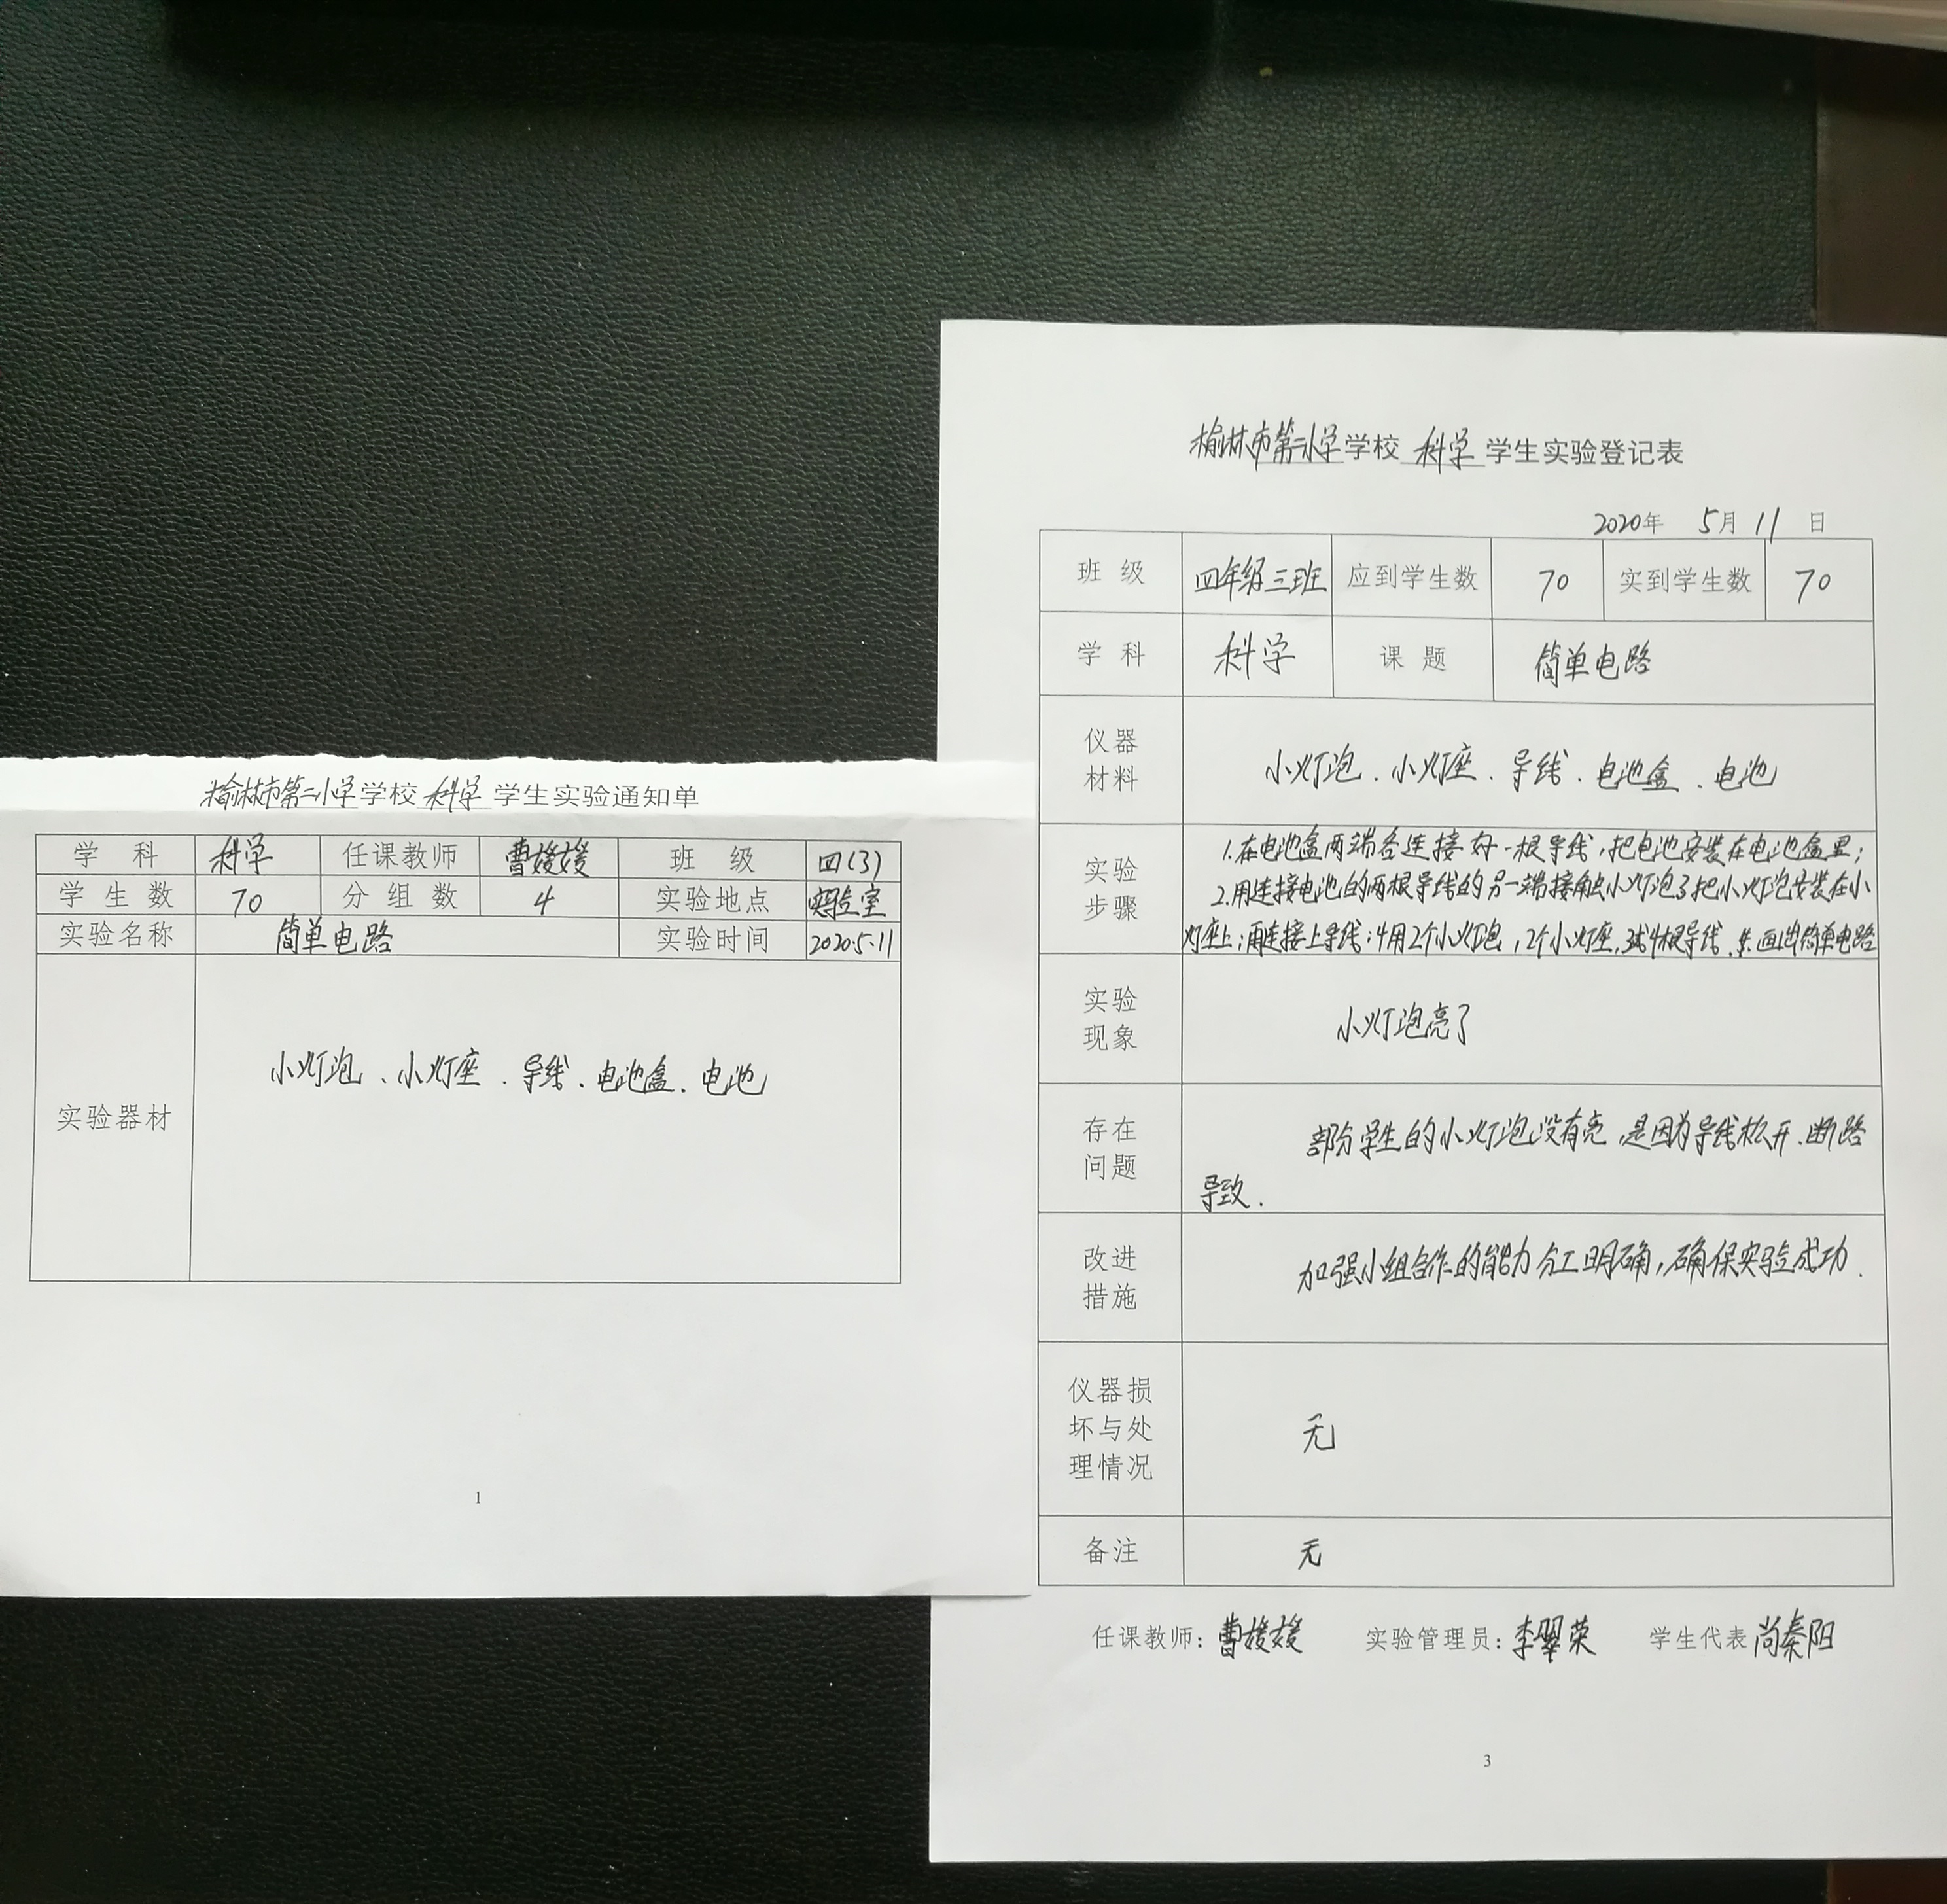 榆林市第二小学学校 科学 学生实验通知单
学 科 科学 任课教师 曹媛媛 班 级 四(3)
学 生 数 70 分 组 数 4 实验地点 实验室
实验名称 简单电路 实验时间 2020.5.11
实验器材 小灯泡、小灯座、导线、电池盒、电池
1
榆林市第二小学学校 科学 学生实验登记表
2020年 5月 11 日
班 级 四年级三班 应到学生数 70 实到学生数 70
学 科 科学 课 题 简单电路
仪器
材料
小灯泡、小灯座、导线、电池盒、电池
实验
步骤
1.在电池盒两端各连接好一根导线,把电池安装在电池盒里;
2.用连接电池的两根导线的另一端接触小灯泡;3把小灯泡安装在小
灯座上;再连接上导线;4用2个小灯泡,2个小灯座,3或4根导线.5.画出简单电路
实验
现象
小灯泡亮了
存在
问题
部分学生的小灯泡没有亮,是因为导线松开、断路
导致.
改进
措施
加强小组合作的能力分工明确,确保实验成功.
仪器损
坏与处
理情况
无
备注
无
任课教师:曹媛媛 实验管理员:李翠荣 学生代表 尚秦阳
3